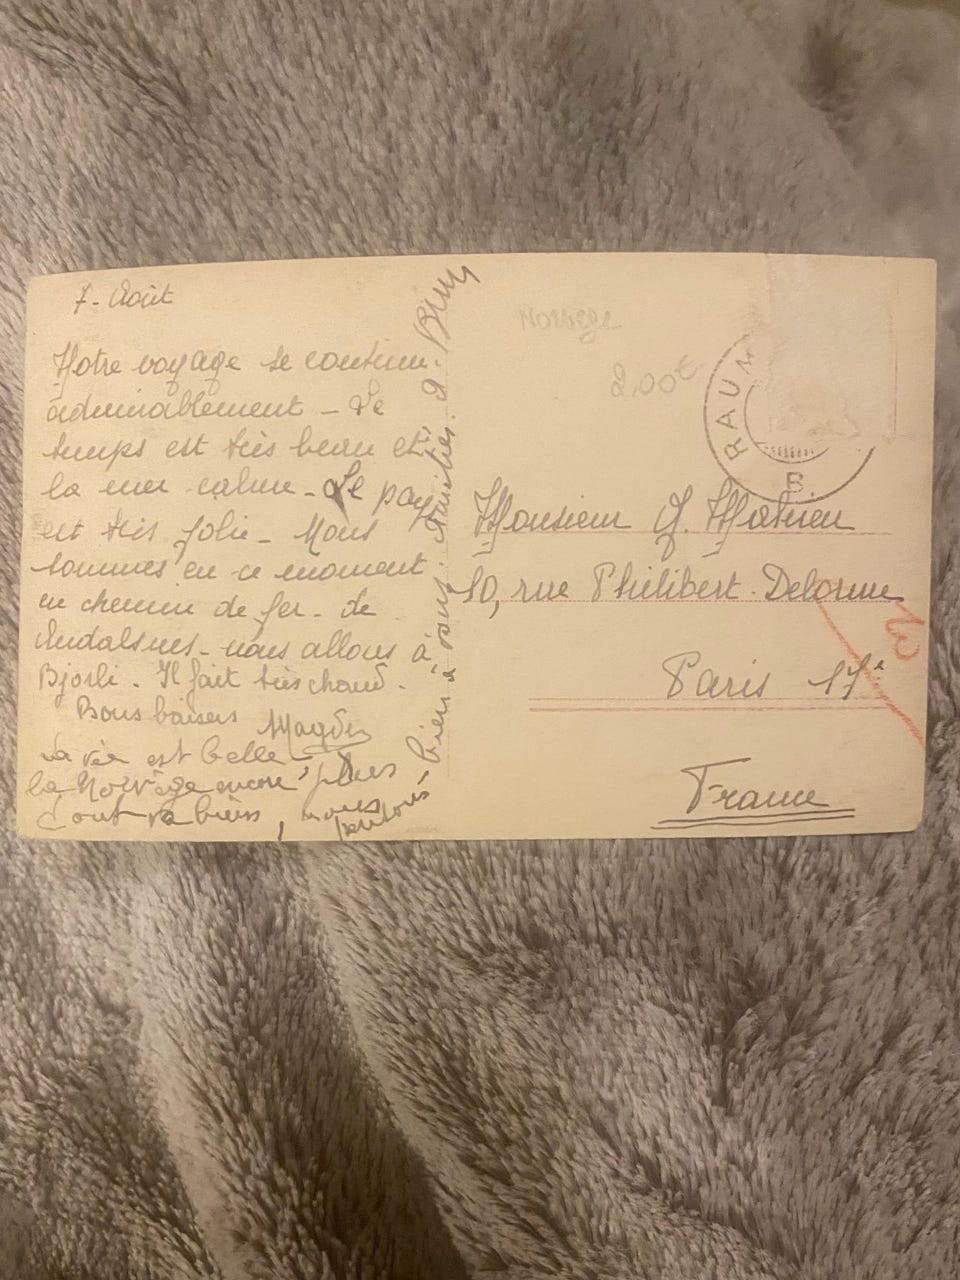 7 - Août
Notre voyage se continue
admirablement - Le
temps est très beau et
la mer calme - Le pays
est très jolie - Nous
sommes en ce moment
en chemin de fer - de
Andalsnes - nous allons à
Bjorli. Il fait très chaud.
Bons baisers Magda
La vie est belle
la Norvège encore plus
tout va bien, nous pensons
bien à vous. Amitiés.
Norvège
2,00€
RAUM
B
Monsieur Mathieu
10, rue Philibert Delorme
Paris 17e
France